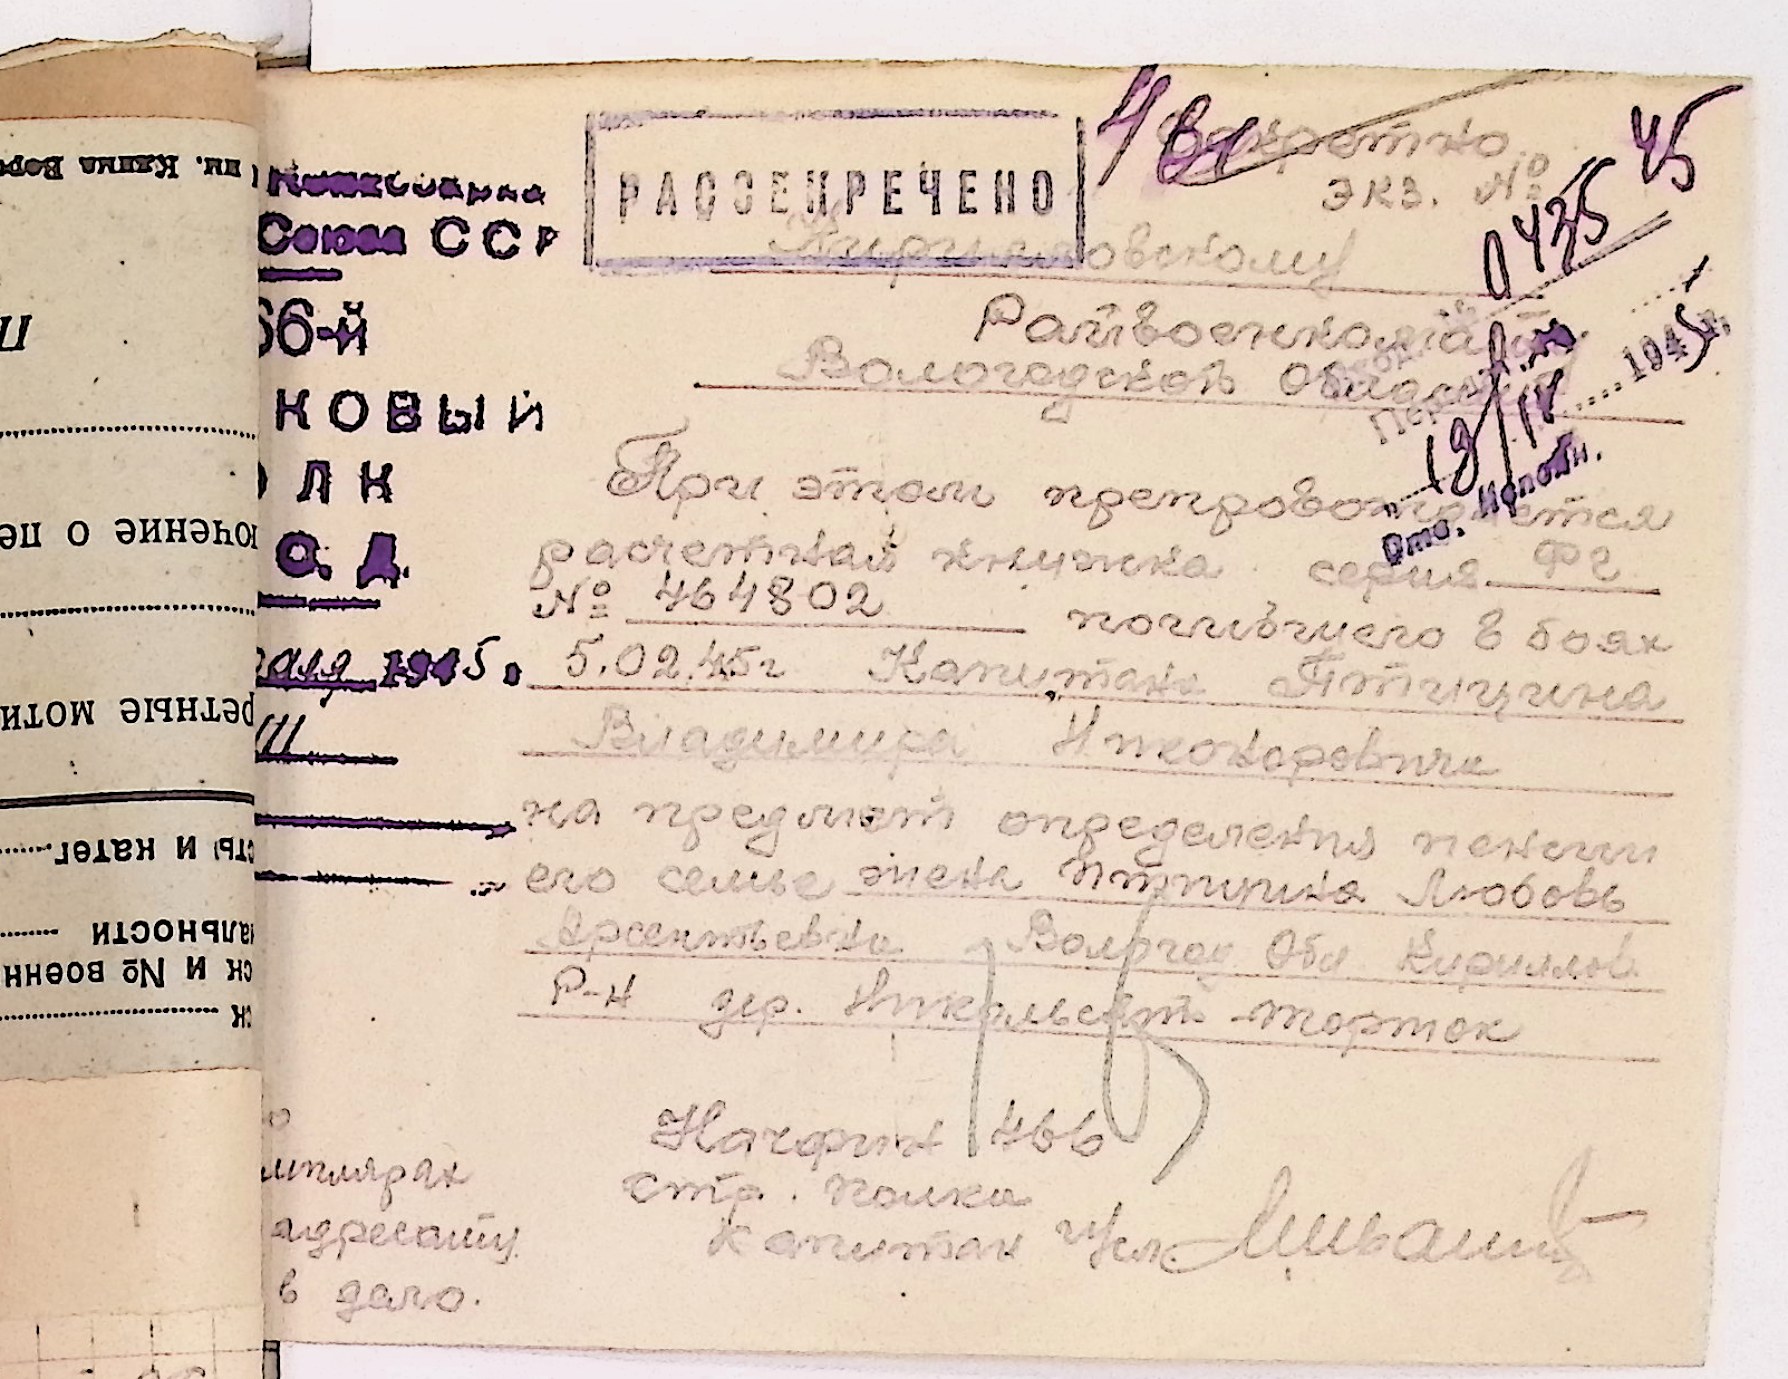 Комиссариат
Союза ССР
66-й
КОВЫЙ
ОЛК
О. Д.
1945 г.
III
РАССЕКРЕЧЕНО
Секретно
экз. №
45
0435
Кирилловскому
Райвоенкомату
Вологодской Области
19/IV 1945 г.
Отв. Исполн.
При этом препровождается
расчетная книжка серия ФГ
№ 464802 погибшего в боях
5.02.45г Капитана Птицина
Владимира Никоноровича
на предмет определения пенсии
его семье жена Птицина Любовь
Арсентьевна Волргод Обл Кириллов.
Р-н дер. Никольский-торжок
Начфин 466
стр. полка
Капитан
адресату
в дело.
ин. Клима Воро
ючение о пе
ретные моти
сть и катег.
альности
ск и № военн